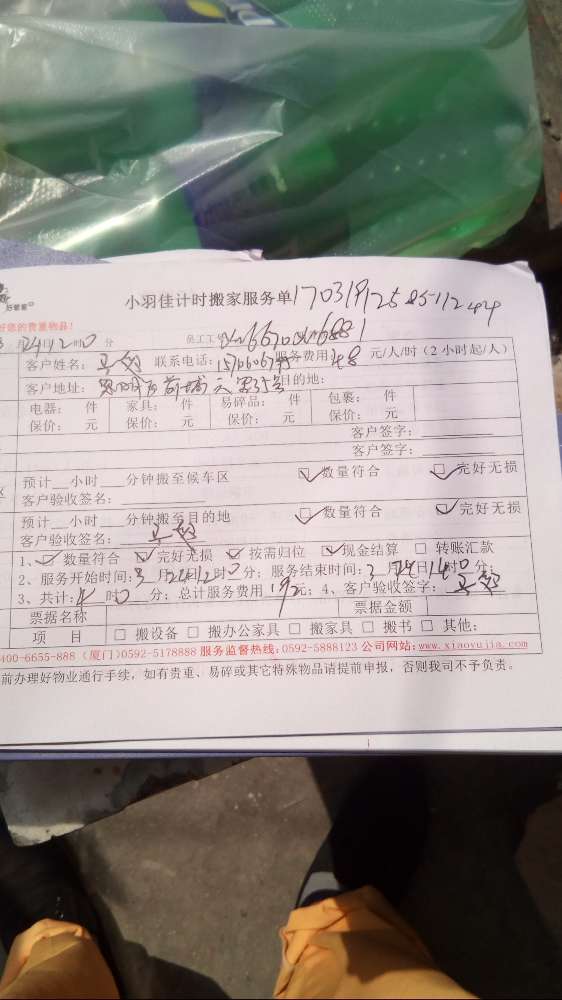 好管家
小羽佳计时搬家服务单 170318125851124
好您的贵重物品!
月24日12时0分 员工工
客户姓名: 联系电话: 服务费用:48元/人/时(2小时起/人)
客户地址: 目的地:
电器: 件 家具: 件 易碎品: 件 包裹: 件
保价: 元 保价: 元 保价: 元 保价: 元
客户签字:
客户签字:
预计__小时___分钟搬至候车区 数量符合 完好无损
客户验收签名:
预计__小时___分钟搬至目的地 数量符合 完好无损
客户验收签名:
1、数量符合 完好无损 按需归位 现金结算 转账汇款
2、服务开始时间:3月24日12时0分;服务结束时间:3月24日14时0分;
3、共计:4时0分;总计服务费用192元;4、客户验收签字:
票据名称 票据金额
项 目 搬设备 搬办公家具 搬家具 搬书 其他:
400-6655-888(厦门)0592-5178888 服务监督热线:0592-5888123 公司网站:www.xiaoyujia.com
前办理好物业通行手续,如有贵重、易碎或其它特殊物品请提前申报,否则我司不予负责。